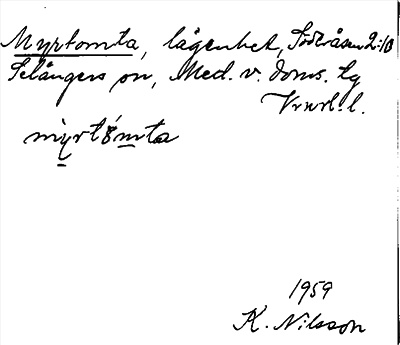 Myrtomta, lägenhet, Söderåsen 2:10
Selångers sn, Med. v. doms. tg
Vrnrl. l.
myrtomta
1959
K. Nilsson